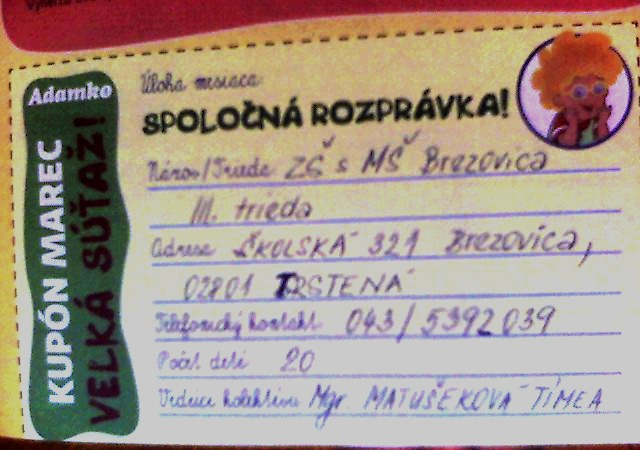 Adamko
KUPÓN MAREC
VEĽKÁ SÚŤAŽ!
Úloha mesiaca:
SPOLOČNÁ ROZPRÁVKA!
Názov/Trieda ZŠ s MŠ Brezovica
III. trieda
Adresa ŠKOLSKÁ 321 Brezovica,
02801 TRSTENÁ
Telefonický kontakt 043/5392039
Počet detí 20
Vedúce kolektívu Mgr MATUŠEKOVÁ TÍMEA